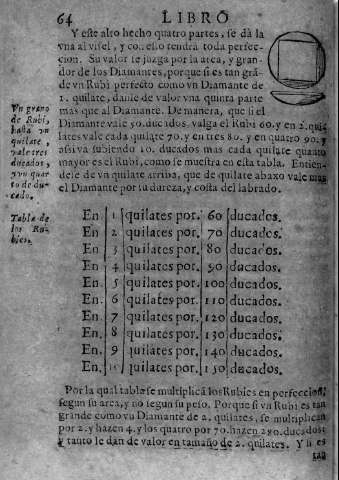 64 LIBRO
Y este alto hecho quatro partes, se dà la
vna al visel, y con ello tendrà toda perfec-
cion. Su valor se juzga por la area, y gran-
dor de los Diamantes, porque si es tan grā-
de vn Rubi perfecto como vn Diamante de
1. quilate, danle de valor vna quinta parte
mas que al Diamante. De manera, que si el
Diamante vale 50. ducados, valga el Rubi 60. y en 2. qui
lates vale cada quilate 70. y en tres 80. y en quatro 90. y
assi va subiendo 10. ducados mas cada quilate quanto
mayor es el Rubi, como se muestra en esta tabla. Entien-
dese de vn quilate arriba, que de quilate abaxo vale mas
el Diamante por su dureza, y costa del labrado.
Vn grano
de Rubi,
hasta vn
quilate,
vale tres
ducados,
y vn quar
to de du-
cado.
Tabla de
los Ru-
bies.
En. 1 quilates por. 60 ducados.
En. 2 quilates por. 70 ducados.
En. 3 quilates por. 80 ducados.
En. 4 quilates por. 90 ducados.
En. 5 quilates por. 100 ducados.
En. 6 quilates por. 110 ducados.
En. 7 quilates por. 120 ducados.
En. 8 quilates por. 130 ducados.
En. 9 quilates por. 140 ducados.
En. 10 quilates por. 150 ducados.
Por la qual tabla se multiplicā los Rubies en perfeccion,
segun su area, y no segun su peso. Porque si vn Rubi es tan
grande como vn Diamante de 2. quilates, se multiplican
por 2. y hazen 4. y los quatro por 70. hazen 280. ducados
y tanto le dan de valor en tamaño de 2. quilates. Y si es
tan